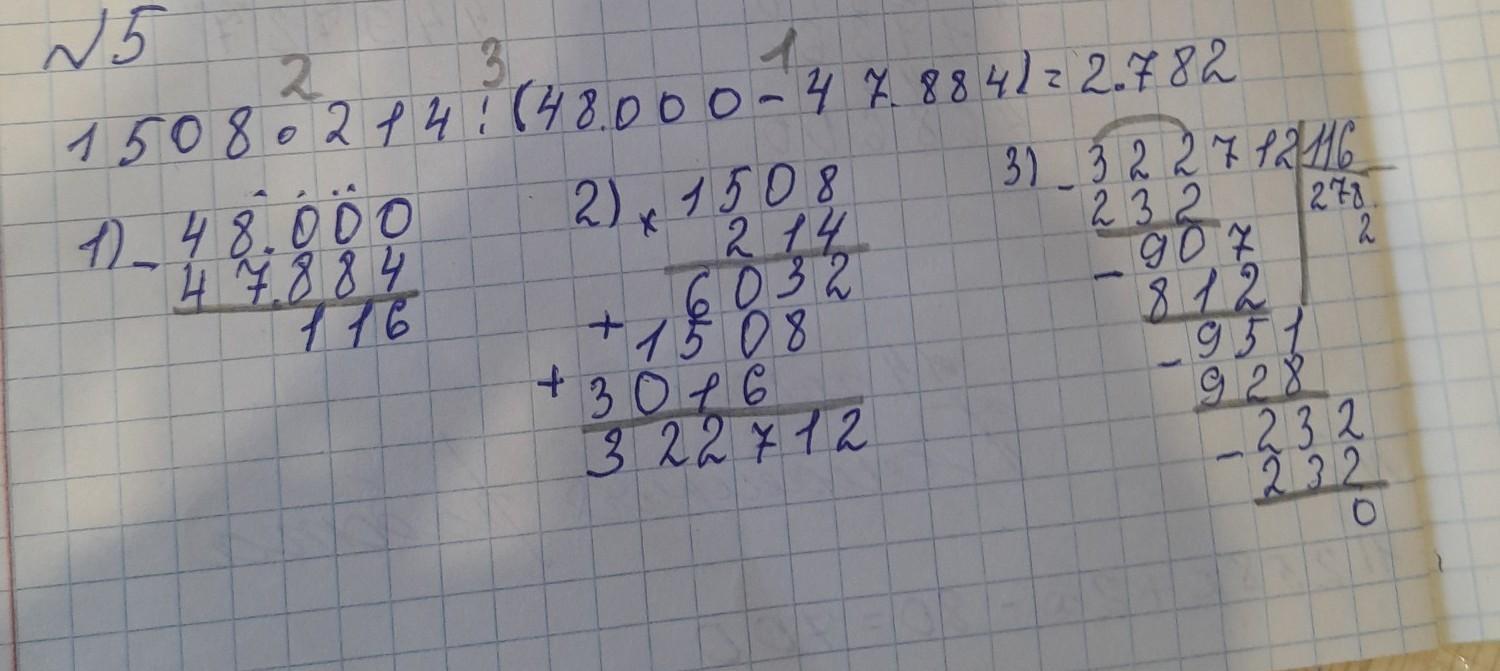 №5
2 3 1
1508 · 214 : (48.000 - 47.884) = 2.782
1) - 48.000
47.884
116
2) × 1508
214
6032
+ 1508
+ 3016
322712
3) - 322712 | 116
232 278.
- 907 2
812
- 951
928
- 232
232
0